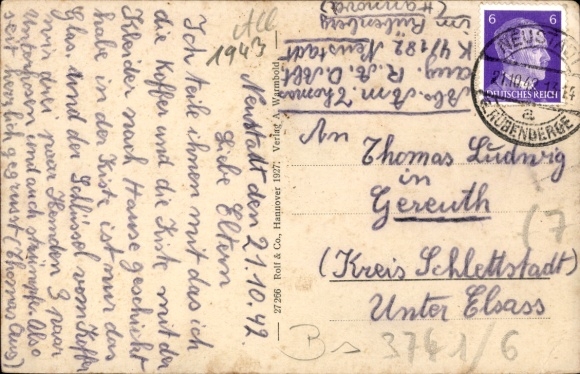 Neustadt den 21.10.42.
Liebe Eltern
Ich teile ihnen mit das ich
die Koffer und die Kiste mit der
Kleider nach Hause geschickt
habe in der Kiste ist nur das
Glas, und der Schlüssel vom Koffer
mir drei paar Hemden 3 paar
Unterhosen und auch strümpfe. Also
seit herzlich gegrüsst (Thomas Aug)
All
1943
Abs. A.m. Thomas
aug. R.A.D. Abt
K4/182 Neustadt
am Rübenberg
(Hannover)
27266 Rolf & Co., Hannover 1927: Verlag A. Warmbold,
6 6
DEUTSCHES REICH
NEUSTADT
21.10.42
a
RÜBENBERGE
An
Thomas Ludwig
in
Gereuth
(Kreis Schlettstadt)
Unter Elsass
(7
Bs 3741/6